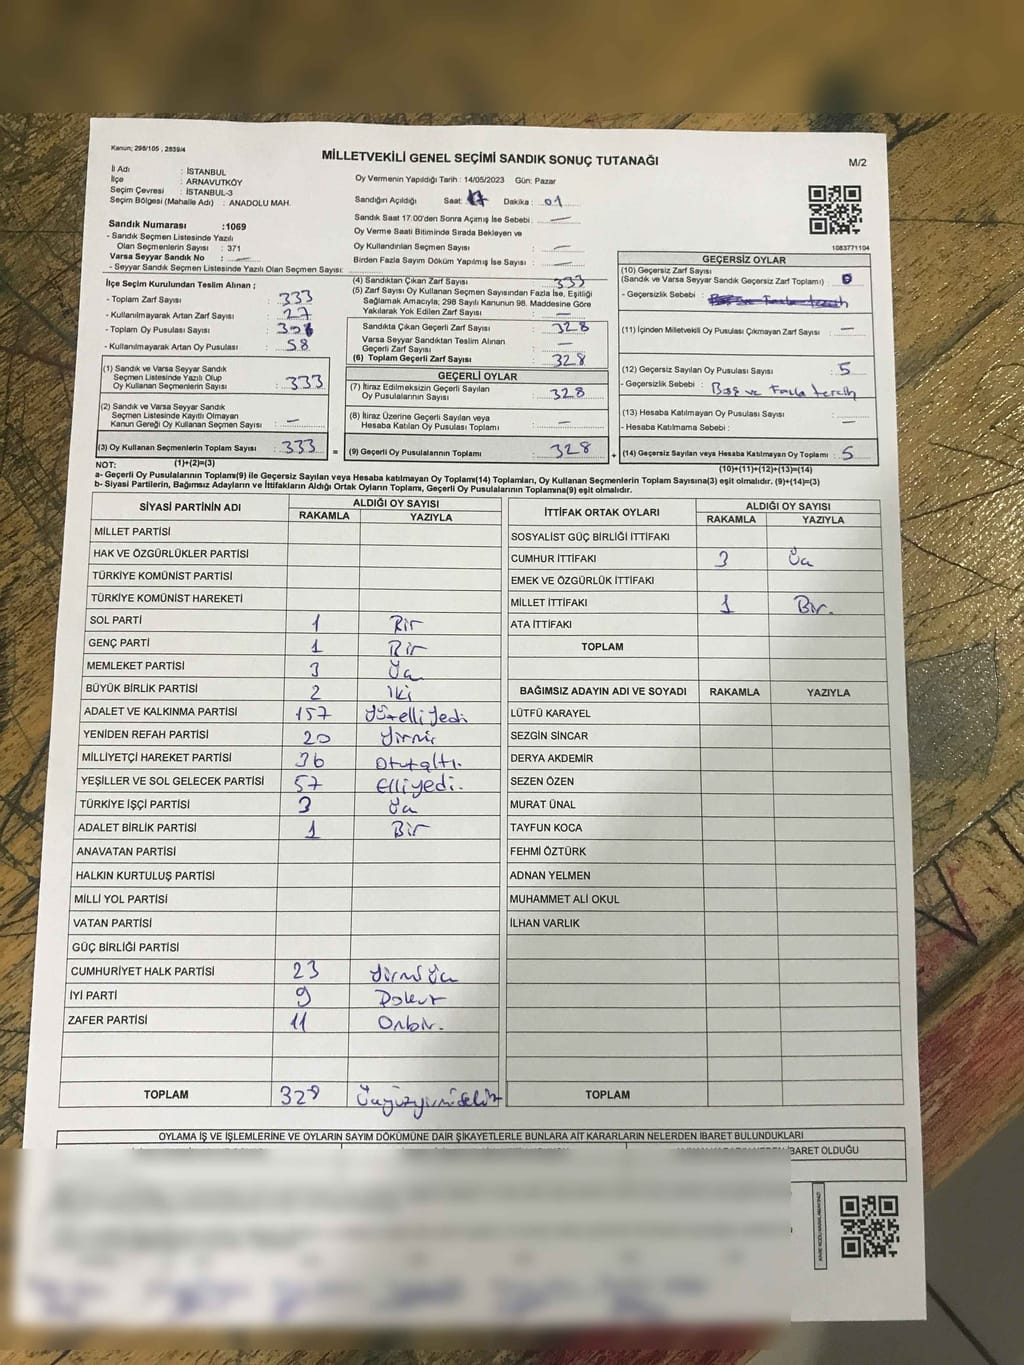 Kanun; 298/105 , 2839/4
MİLLETVEKİLİ GENEL SEÇİMİ SANDIK SONUÇ TUTANAĞI
M/2
İl Adı : İSTANBUL
İlçe : ARNAVUTKÖY
Seçim Çevresi : İSTANBUL-3
Seçim Bölgesi (Mahalle Adı) : ANADOLU MAH.
Sandık Numarası :1069
- Sandık Seçmen Listesinde Yazılı
Olan Seçmenlerin Sayısı : 371
Varsa Seyyar Sandık No : —
- Seyyar Sandık Seçmen Listesinde Yazılı Olan Seçmen Sayısı:
Oy Vermenin Yapıldığı Tarih : 14/05/2023 Gün: Pazar
Sandığın Açıldığı Saat : 17 Dakika : 01
Sandık Saat 17.00'den Sonra Açılmış İse Sebebi : —
Oy Verme Saati Bitiminde Sırada Bekleyen ve
Oy Kullandırılan Seçmen Sayısı : —
Birden Fazla Sayım Döküm Yapılmış İse Sayısı : —
1083771104
İlçe Seçim Kurulundan Teslim Alınan ;
- Toplam Zarf Sayısı : 333
- Kullanılmayarak Artan Zarf Sayısı : 27
- Toplam Oy Pusulası Sayısı :
- Kullanılmayarak Artan Oy Pusulası : 58
(1) Sandık ve Varsa Seyyar Sandık
Seçmen Listesinde Yazılı Olup
Oy Kullanan Seçmenlerin Sayısı : 333
(2) Sandık ve Varsa Seyyar Sandık
Seçmen Listesinde Kayıtlı Olmayan
Kanun Gereği Oy Kullanan Seçmen Sayısı : —
(3) Oy Kullanan Seçmenlerin Toplam Sayısı : 333
(1)+(2)=(3)
(4) Sandıktan Çıkan Zarf Sayısı : 333
(5) Zarf Sayısı Oy Kullanan Seçmen Sayısından Fazla İse, Eşitliği
Sağlamak Amacıyla; 298 Sayılı Kanunun 98. Maddesine Göre
Yakılarak Yok Edilen Zarf Sayısı : —
Sandıkta Çıkan Geçerli Zarf Sayısı : 328
Varsa Seyyar Sandıktan Teslim Alınan
Geçerli Zarf Sayısı : —
(6) Toplam Geçerli Zarf Sayısı : 328
GEÇERLİ OYLAR
(7) İtiraz Edilmeksizin Geçerli Sayılan
Oy Pusulalarının Sayısı : 328
(8) İtiraz Üzerine Geçerli Sayılan veya
Hesaba Katılan Oy Pusulası Toplamı : —
= (9) Geçerli Oy Pusulalarının Toplamı : 328
GEÇERSİZ OYLAR
(10) Geçersiz Zarf Sayısı
(Sandık ve Varsa Seyyar Sandık Geçersiz Zarf Toplamı) : 0
- Geçersizlik Sebebi :
(11) İçinden Milletvekili Oy Pusulası Çıkmayan Zarf Sayısı : —
(12) Geçersiz Sayılan Oy Pusulası Sayısı : 5
- Geçersizlik Sebebi : Boş ve Fazla tercih
(13) Hesaba Katılmayan Oy Pusulası Sayısı :
- Hesaba Katılmama Sebebi : —
+ (14) Geçersiz Sayılan veya Hesaba Katılmayan Oy Toplamı : 5
(10)+(11)+(12)+(13)=(14)
NOT:
a- Geçerli Oy Pusulalarının Toplamı(9) ile Geçersiz Sayılan veya Hesaba katılmayan Oy Toplamı(14) Toplamları, Oy Kullanan Seçmenlerin Toplam Sayısına(3) eşit olmalıdır. (9)+(14)=(3)
b- Siyasi Partilerin, Bağımsız Adayların ve İttifakların Aldığı Ortak Oyların Toplamı, Geçerli Oy Pusulalarının Toplamına(9) eşit olmalıdır.
SİYASİ PARTİNİN ADI ALDIĞI OY SAYISI
RAKAMLA YAZIYLA
MİLLET PARTİSİ
HAK VE ÖZGÜRLÜKLER PARTİSİ
TÜRKİYE KOMÜNİST PARTİSİ
TÜRKİYE KOMÜNİST HAREKETİ
SOL PARTİ 1 Bir
GENÇ PARTİ 1 Bir
MEMLEKET PARTİSİ 3 Üç
BÜYÜK BİRLİK PARTİSİ 2 iki
ADALET VE KALKINMA PARTİSİ 157 Yüzelliyedi
YENİDEN REFAH PARTİSİ 20 Yirmi
MİLLİYETÇİ HAREKET PARTİSİ 36 Otuzaltı.
YEŞİLLER VE SOL GELECEK PARTİSİ 57 Elliyedi.
TÜRKİYE İŞÇİ PARTİSİ 3 Üç
ADALET BİRLİK PARTİSİ 1 Bir
ANAVATAN PARTİSİ
HALKIN KURTULUŞ PARTİSİ
MİLLİ YOL PARTİSİ
VATAN PARTİSİ
GÜÇ BİRLİĞİ PARTİSİ
CUMHURİYET HALK PARTİSİ 23 Yirmiüç
İYİ PARTİ 9 Dokuz
ZAFER PARTİSİ 11 Onbir.
TOPLAM 328 Üçyüzyirmisekiz
İTTİFAK ORTAK OYLARI ALDIĞI OY SAYISI
RAKAMLA YAZIYLA
SOSYALİST GÜÇ BİRLİĞİ İTTİFAKI
CUMHUR İTTİFAKI 3 Üç
EMEK VE ÖZGÜRLÜK İTTİFAKI
MİLLET İTTİFAKI 1 Bir.
ATA İTTİFAKI
TOPLAM
BAĞIMSIZ ADAYIN ADI VE SOYADI RAKAMLA YAZIYLA
LÜTFÜ KARAYEL
SEZGİN SİNCAR
DERYA AKDEMİR
SEZEN ÖZEN
MURAT ÜNAL
TAYFUN KOCA
FEHMİ ÖZTÜRK
ADNAN YELMEN
MUHAMMET ALİ OKUL
İLHAN VARLIK
TOPLAM
OYLAMA İŞ VE İŞLEMLERİNE VE OYLARIN SAYIM DÖKÜMÜNE DAİR ŞİKAYETLERLE BUNLARA AİT KARARLARIN NELERDEN İBARET BULUNDUKLARI
İBARET OLDUĞU